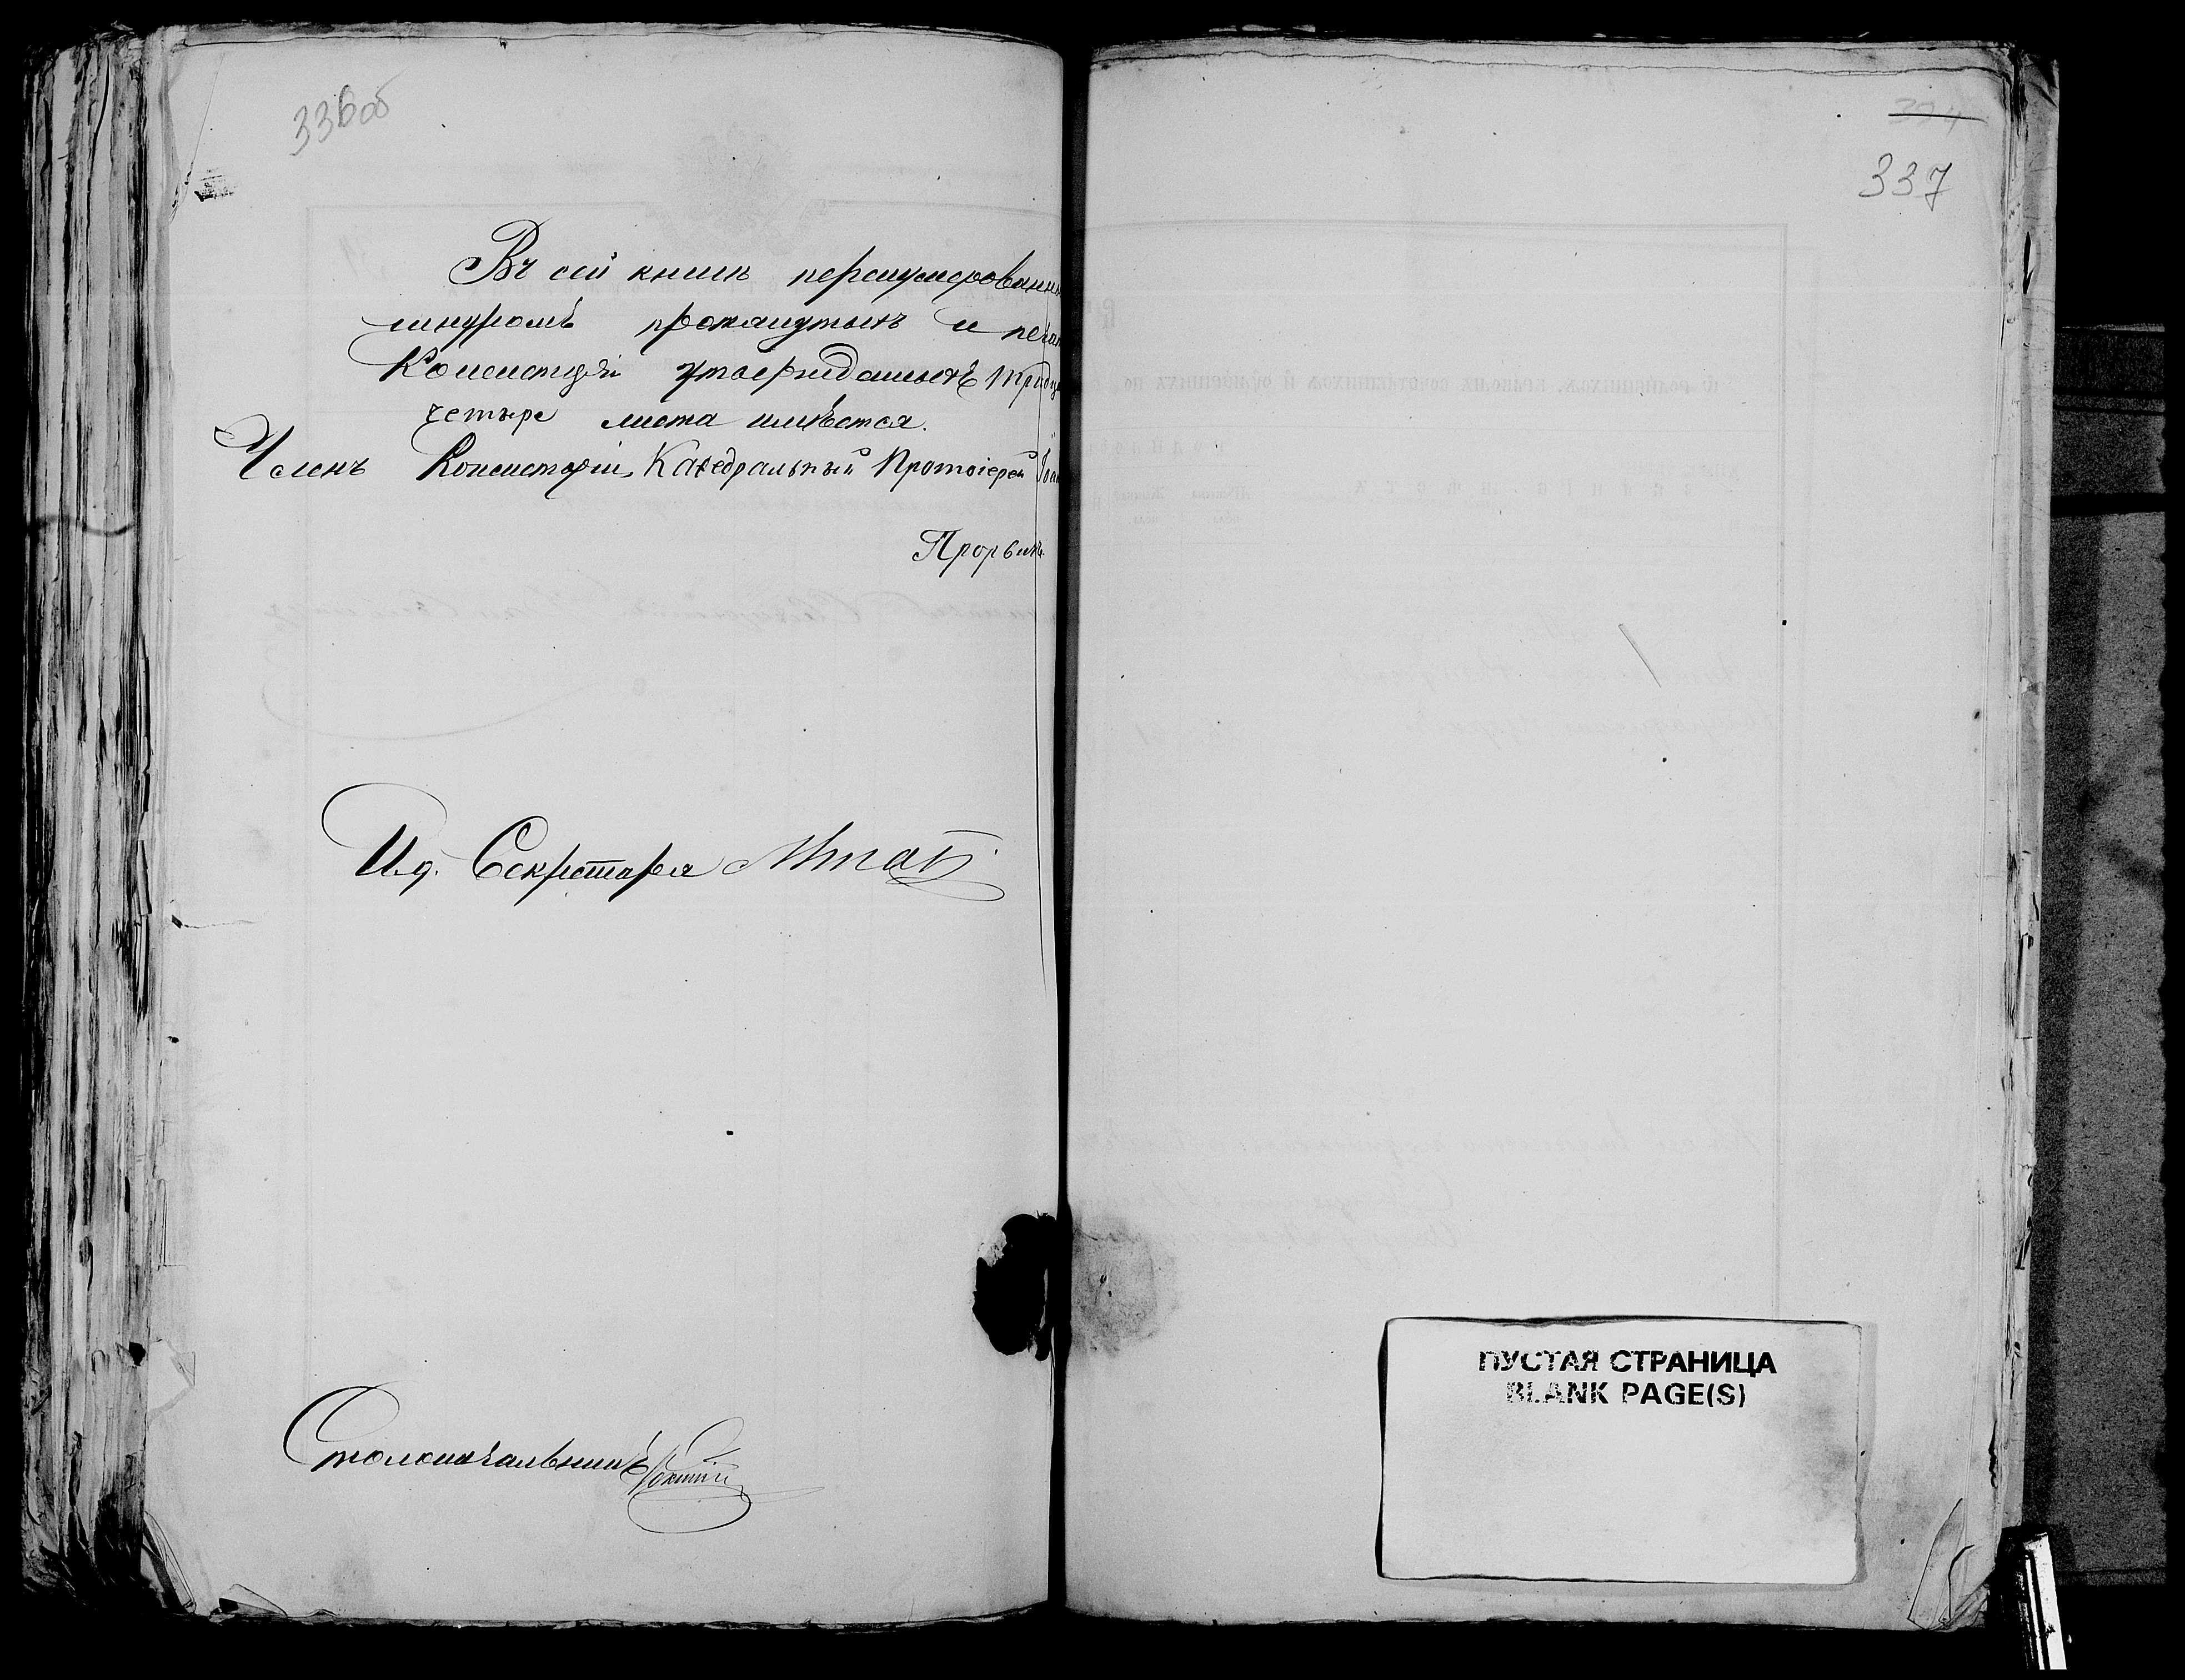 336об
Въ сей книгѣ перенумерованн
шнуромъ протянутыхъ и печат
Консисторіи утвержденныхъ тридца
четыре листа имѣется.
Членъ Консисторіи, Каѳедральный Протоіерей Іоан
Прорвичъ.
И.д. Секретаря
Столоначальникъ
337
ПУСТАЯ СТРАНИЦА
BLANK PAGE(S)